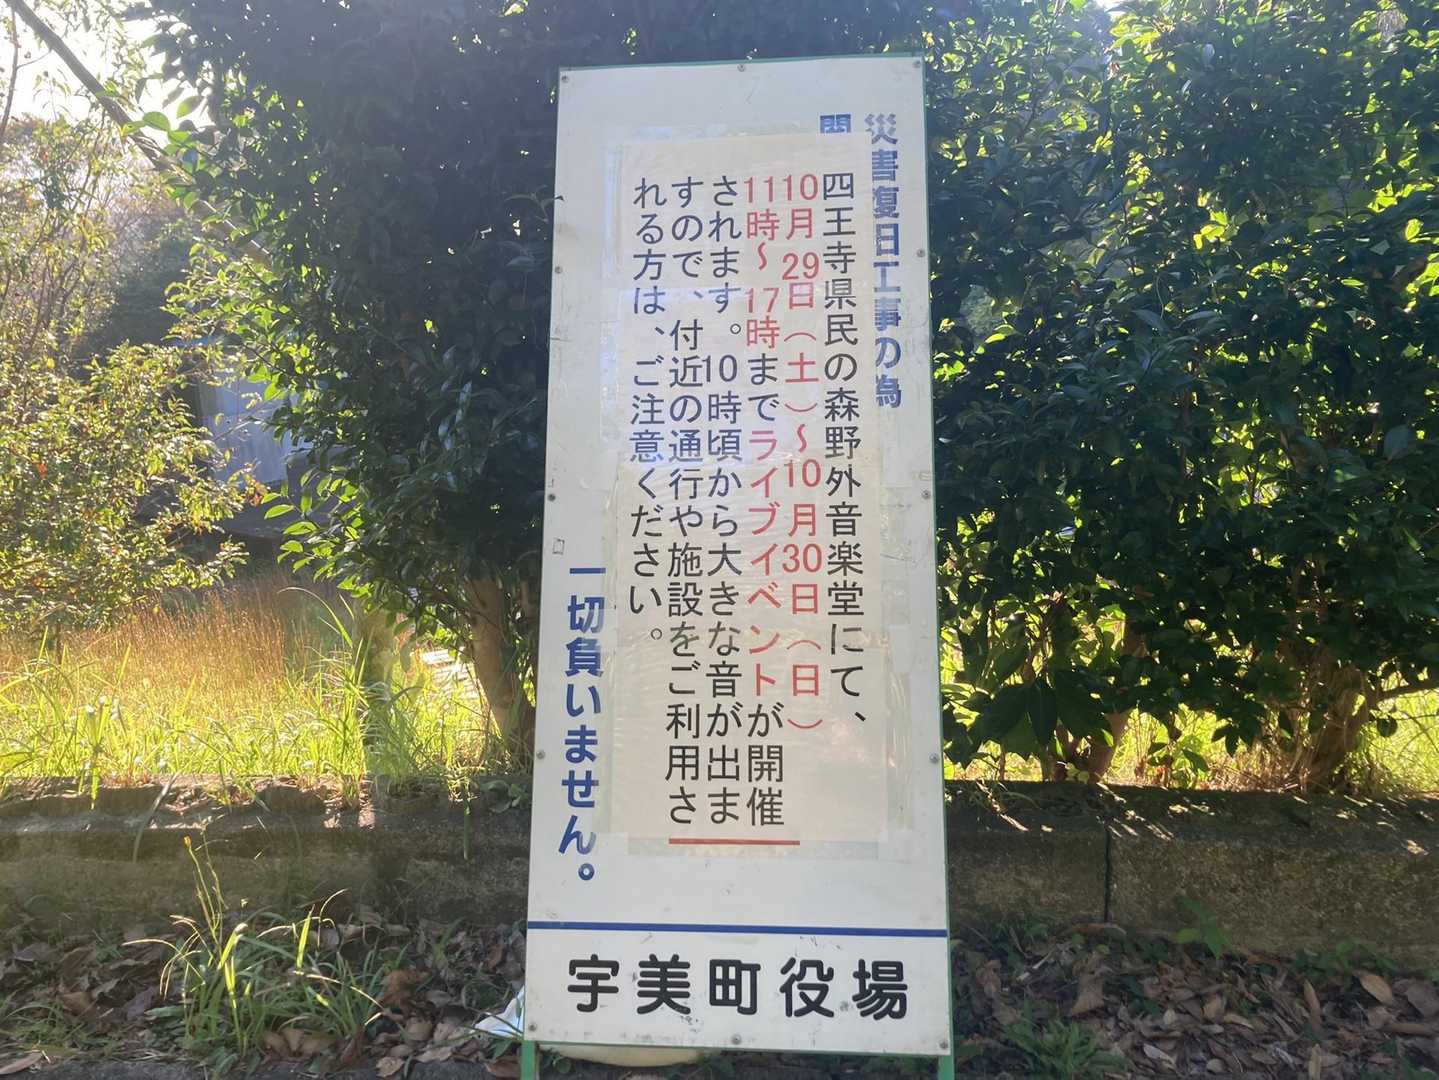 災害復旧工事の為
四王寺県民の森野外音楽堂にて、
10月29日（土）～10月30日（日）
11時～17時までライブイベントが開催
されます。10時頃から大きな音が出ま
すので、付近の通行や施設をご利用さ
れる方は、ご注意ください。
一切負いません。
宇美町役場